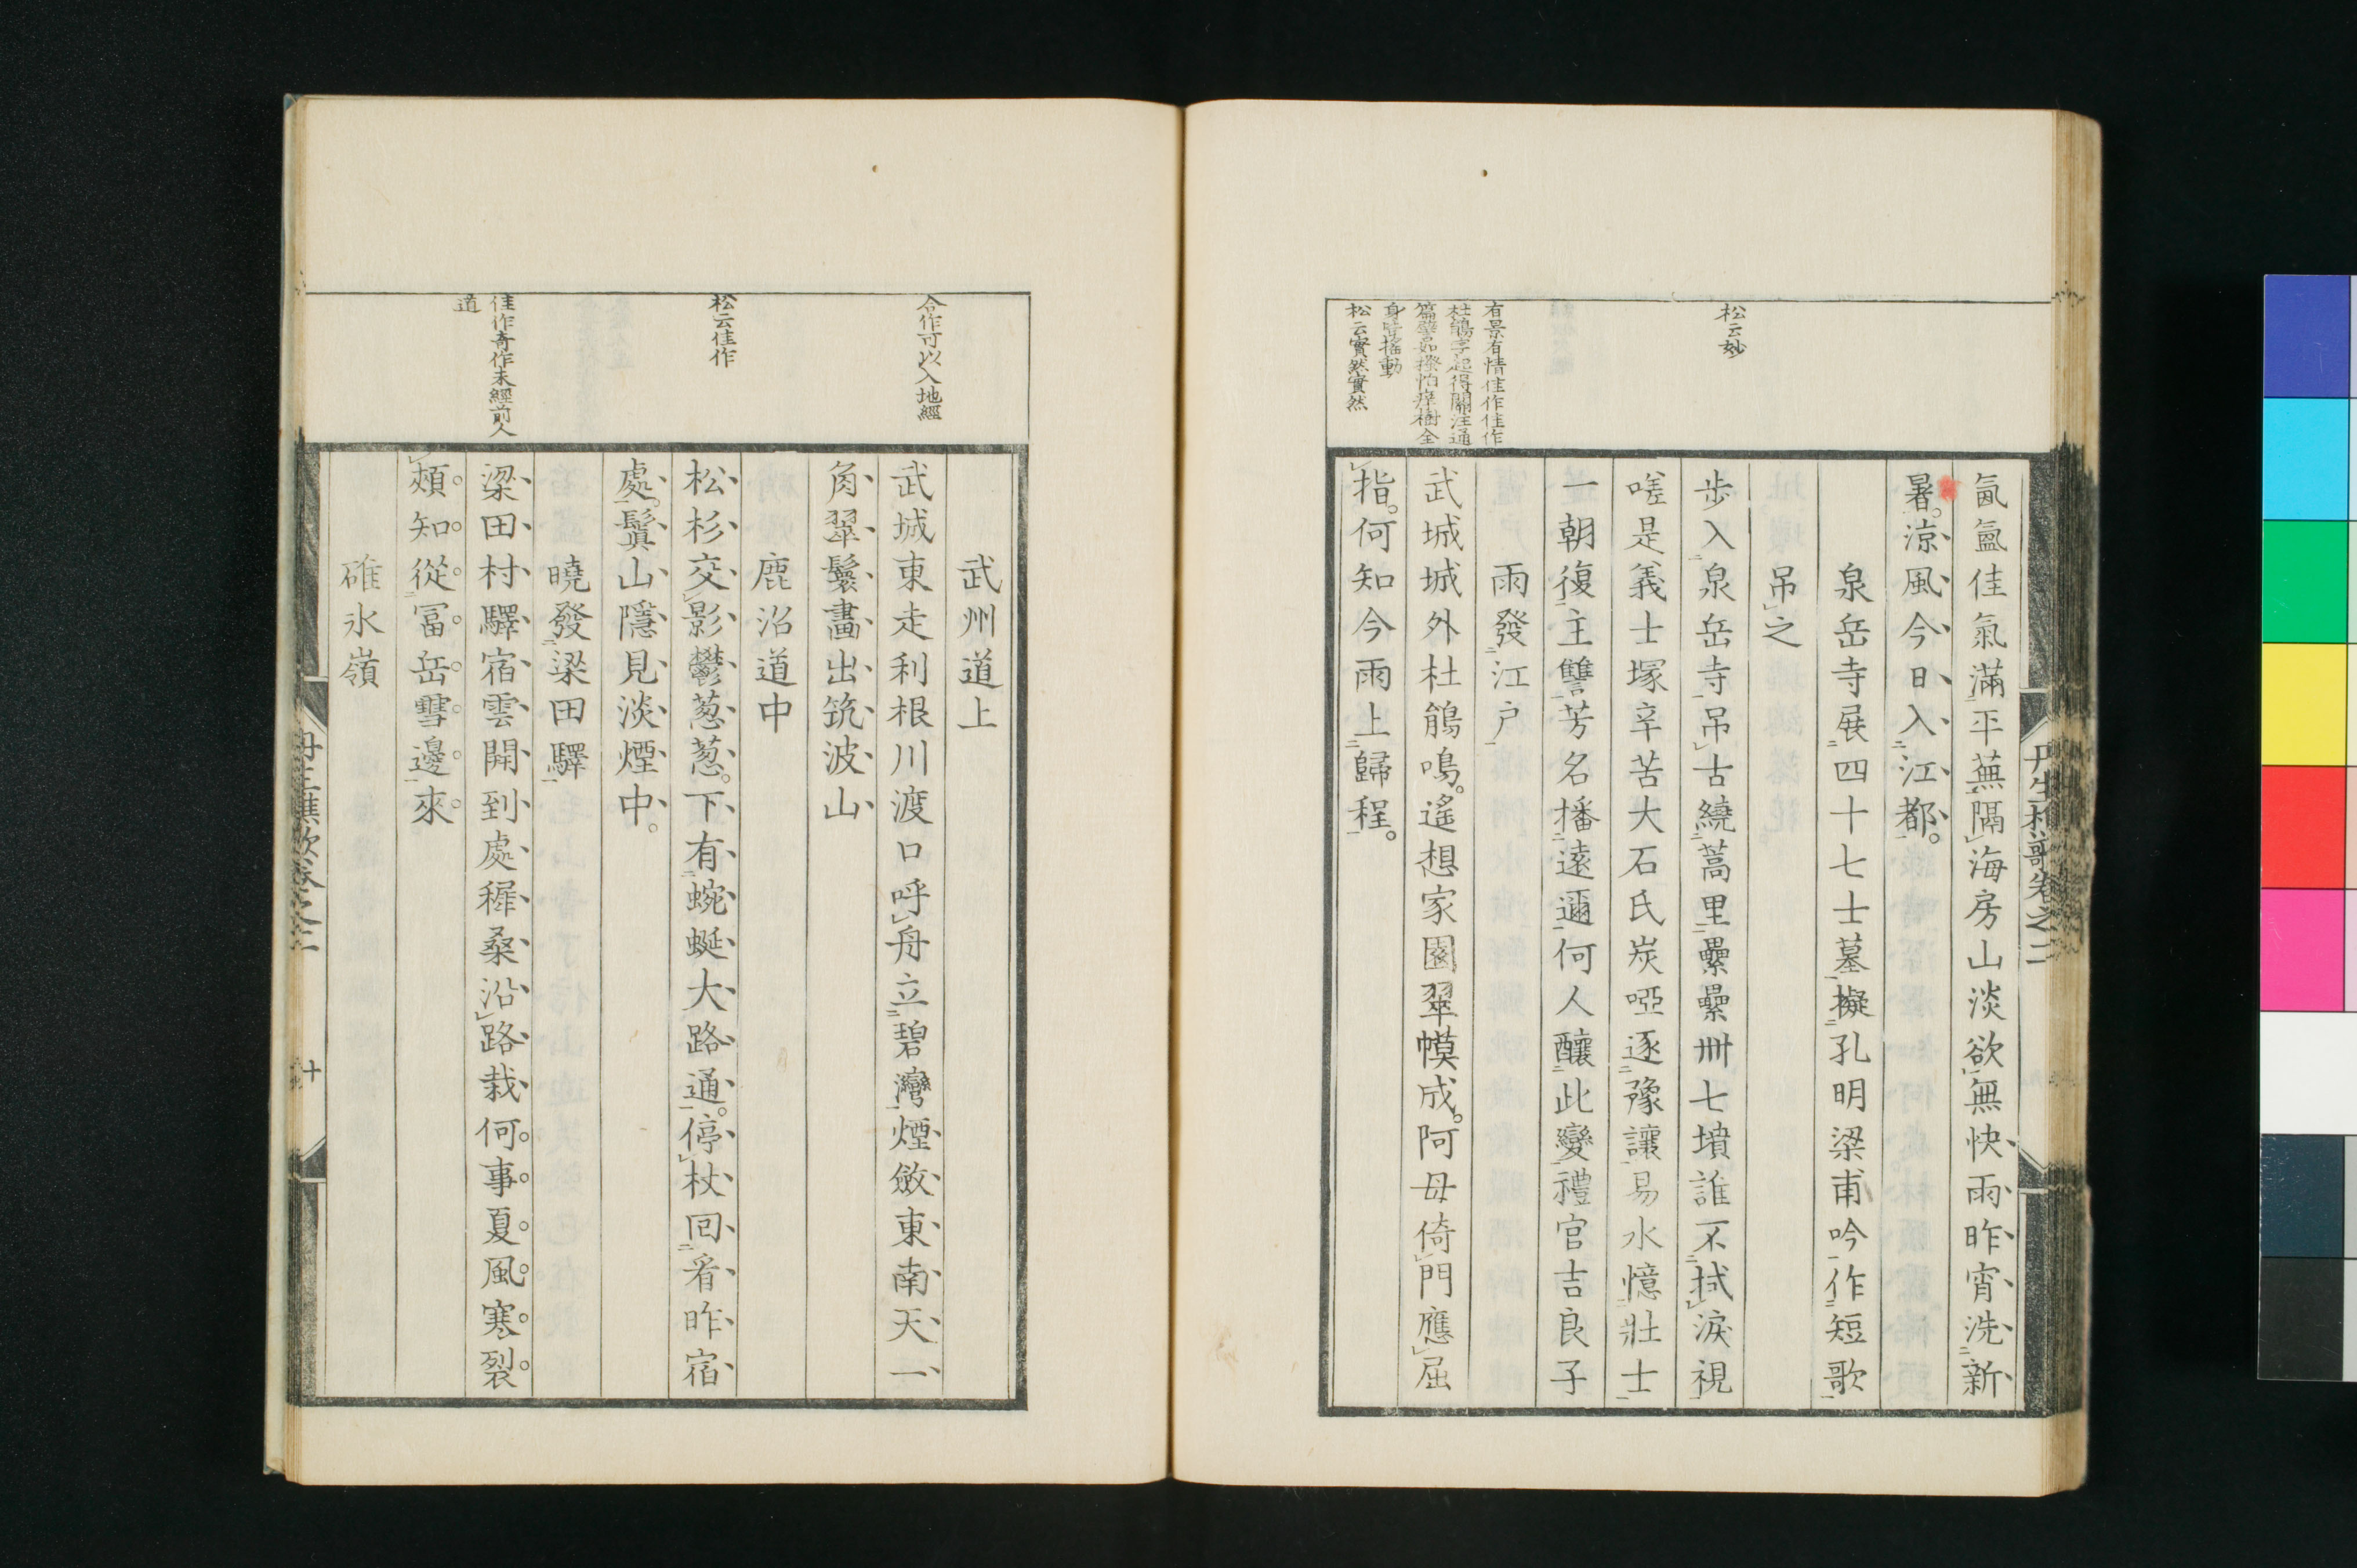 丹生樵歌卷之二
氤氳佳氣滿平蕪隔海房山淡欲無快雨昨宵洗新
暑。涼風今日入江都。
泉岳寺展四十七士墓擬孔明梁甫吟作短歌
吊之
松云妙
步入泉岳寺吊古繞蒿里纍纍卌七墳誰不拭淚視
嗟是義士塚辛苦大石氏炭啞逐豫讓易水憶壯士
一朝復主讐芳名播遠邇何人釀此變禮官吉良子
雨發江戶
有景有情佳作佳作
杜鵑字起得關注通
篇譬如搔怕痒樹全
身皆搖動
松云實然實然
武城城外杜鵑鳴。遙想家園翠幙成。阿母倚門應屈
指。何知今雨上歸程。
武州道上
合作可以入地經
武城東走利根川渡口呼舟立碧灣煙斂東南天一
角翠鬟畫出筑波山
鹿沼道中
松云佳作
松杉交影鬱葱葱。下有蜿蜒大路通。停杖囘看昨宿
處。鬢山隱見淡煙中。
曉發梁田驛
佳作奇作未經前人
道
梁田村驛宿雲開到處穉桑沿路栽何事夏風寒裂
頰知從冨岳雪邊來
碓氷嶺
丹生樵歌卷之二
十